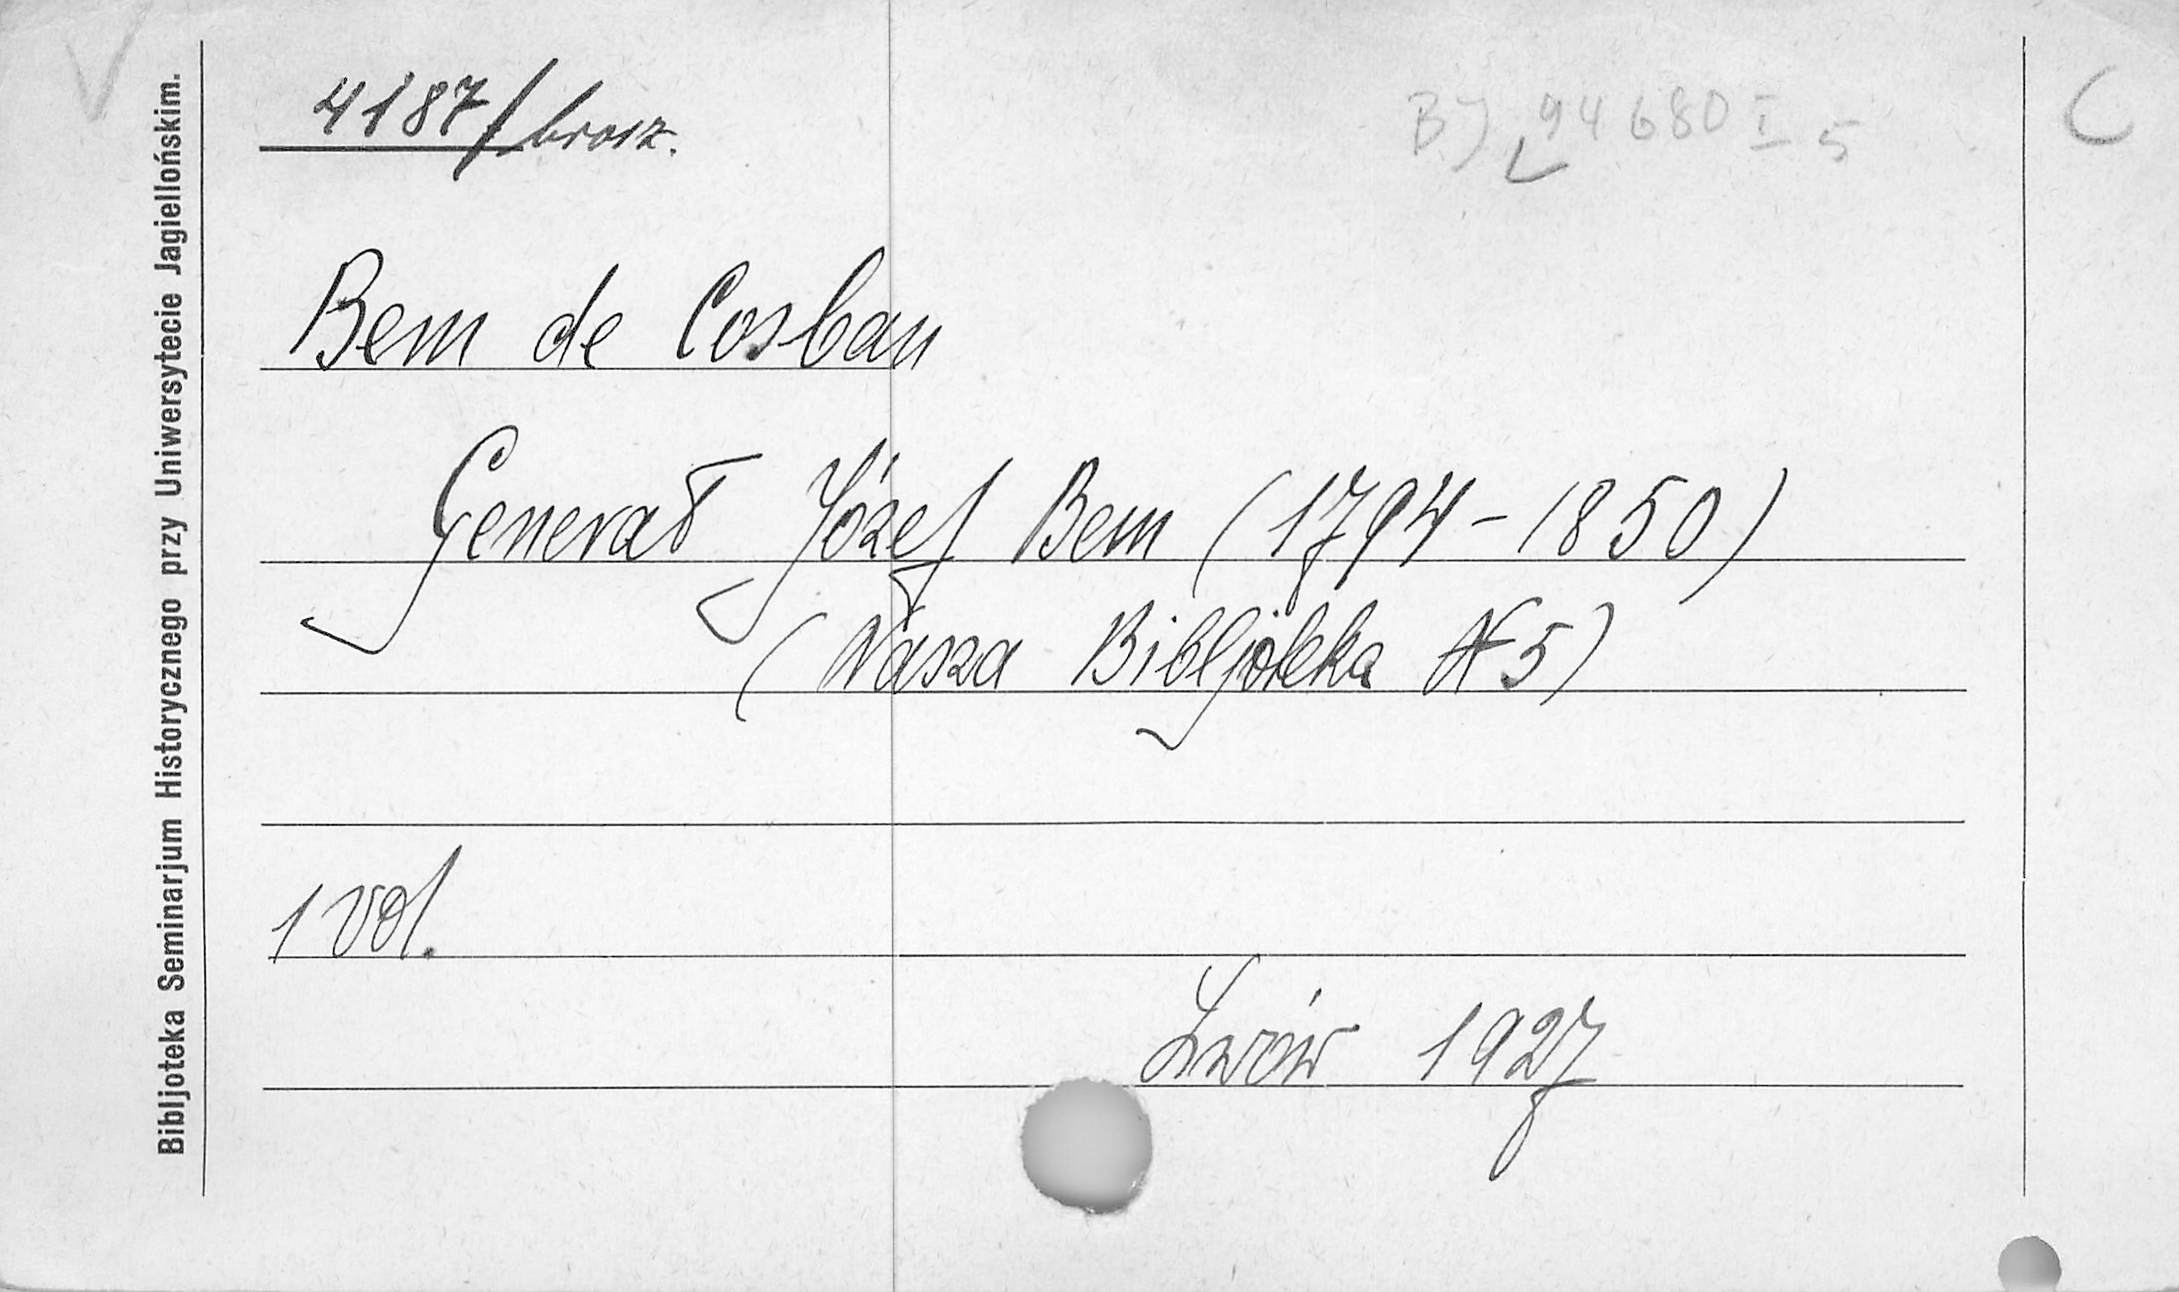 Bibljoteka Seminarjum Historycznego przy Uniwersytecie Jagiellońskim.
V
4187/brosz.
BJ 94680 I 5
C
Bem de Cosban
Generał Józef Bem (1794-1850)
(Nasza Bibljoteka № 5)
1 vol.
Lwów 1927